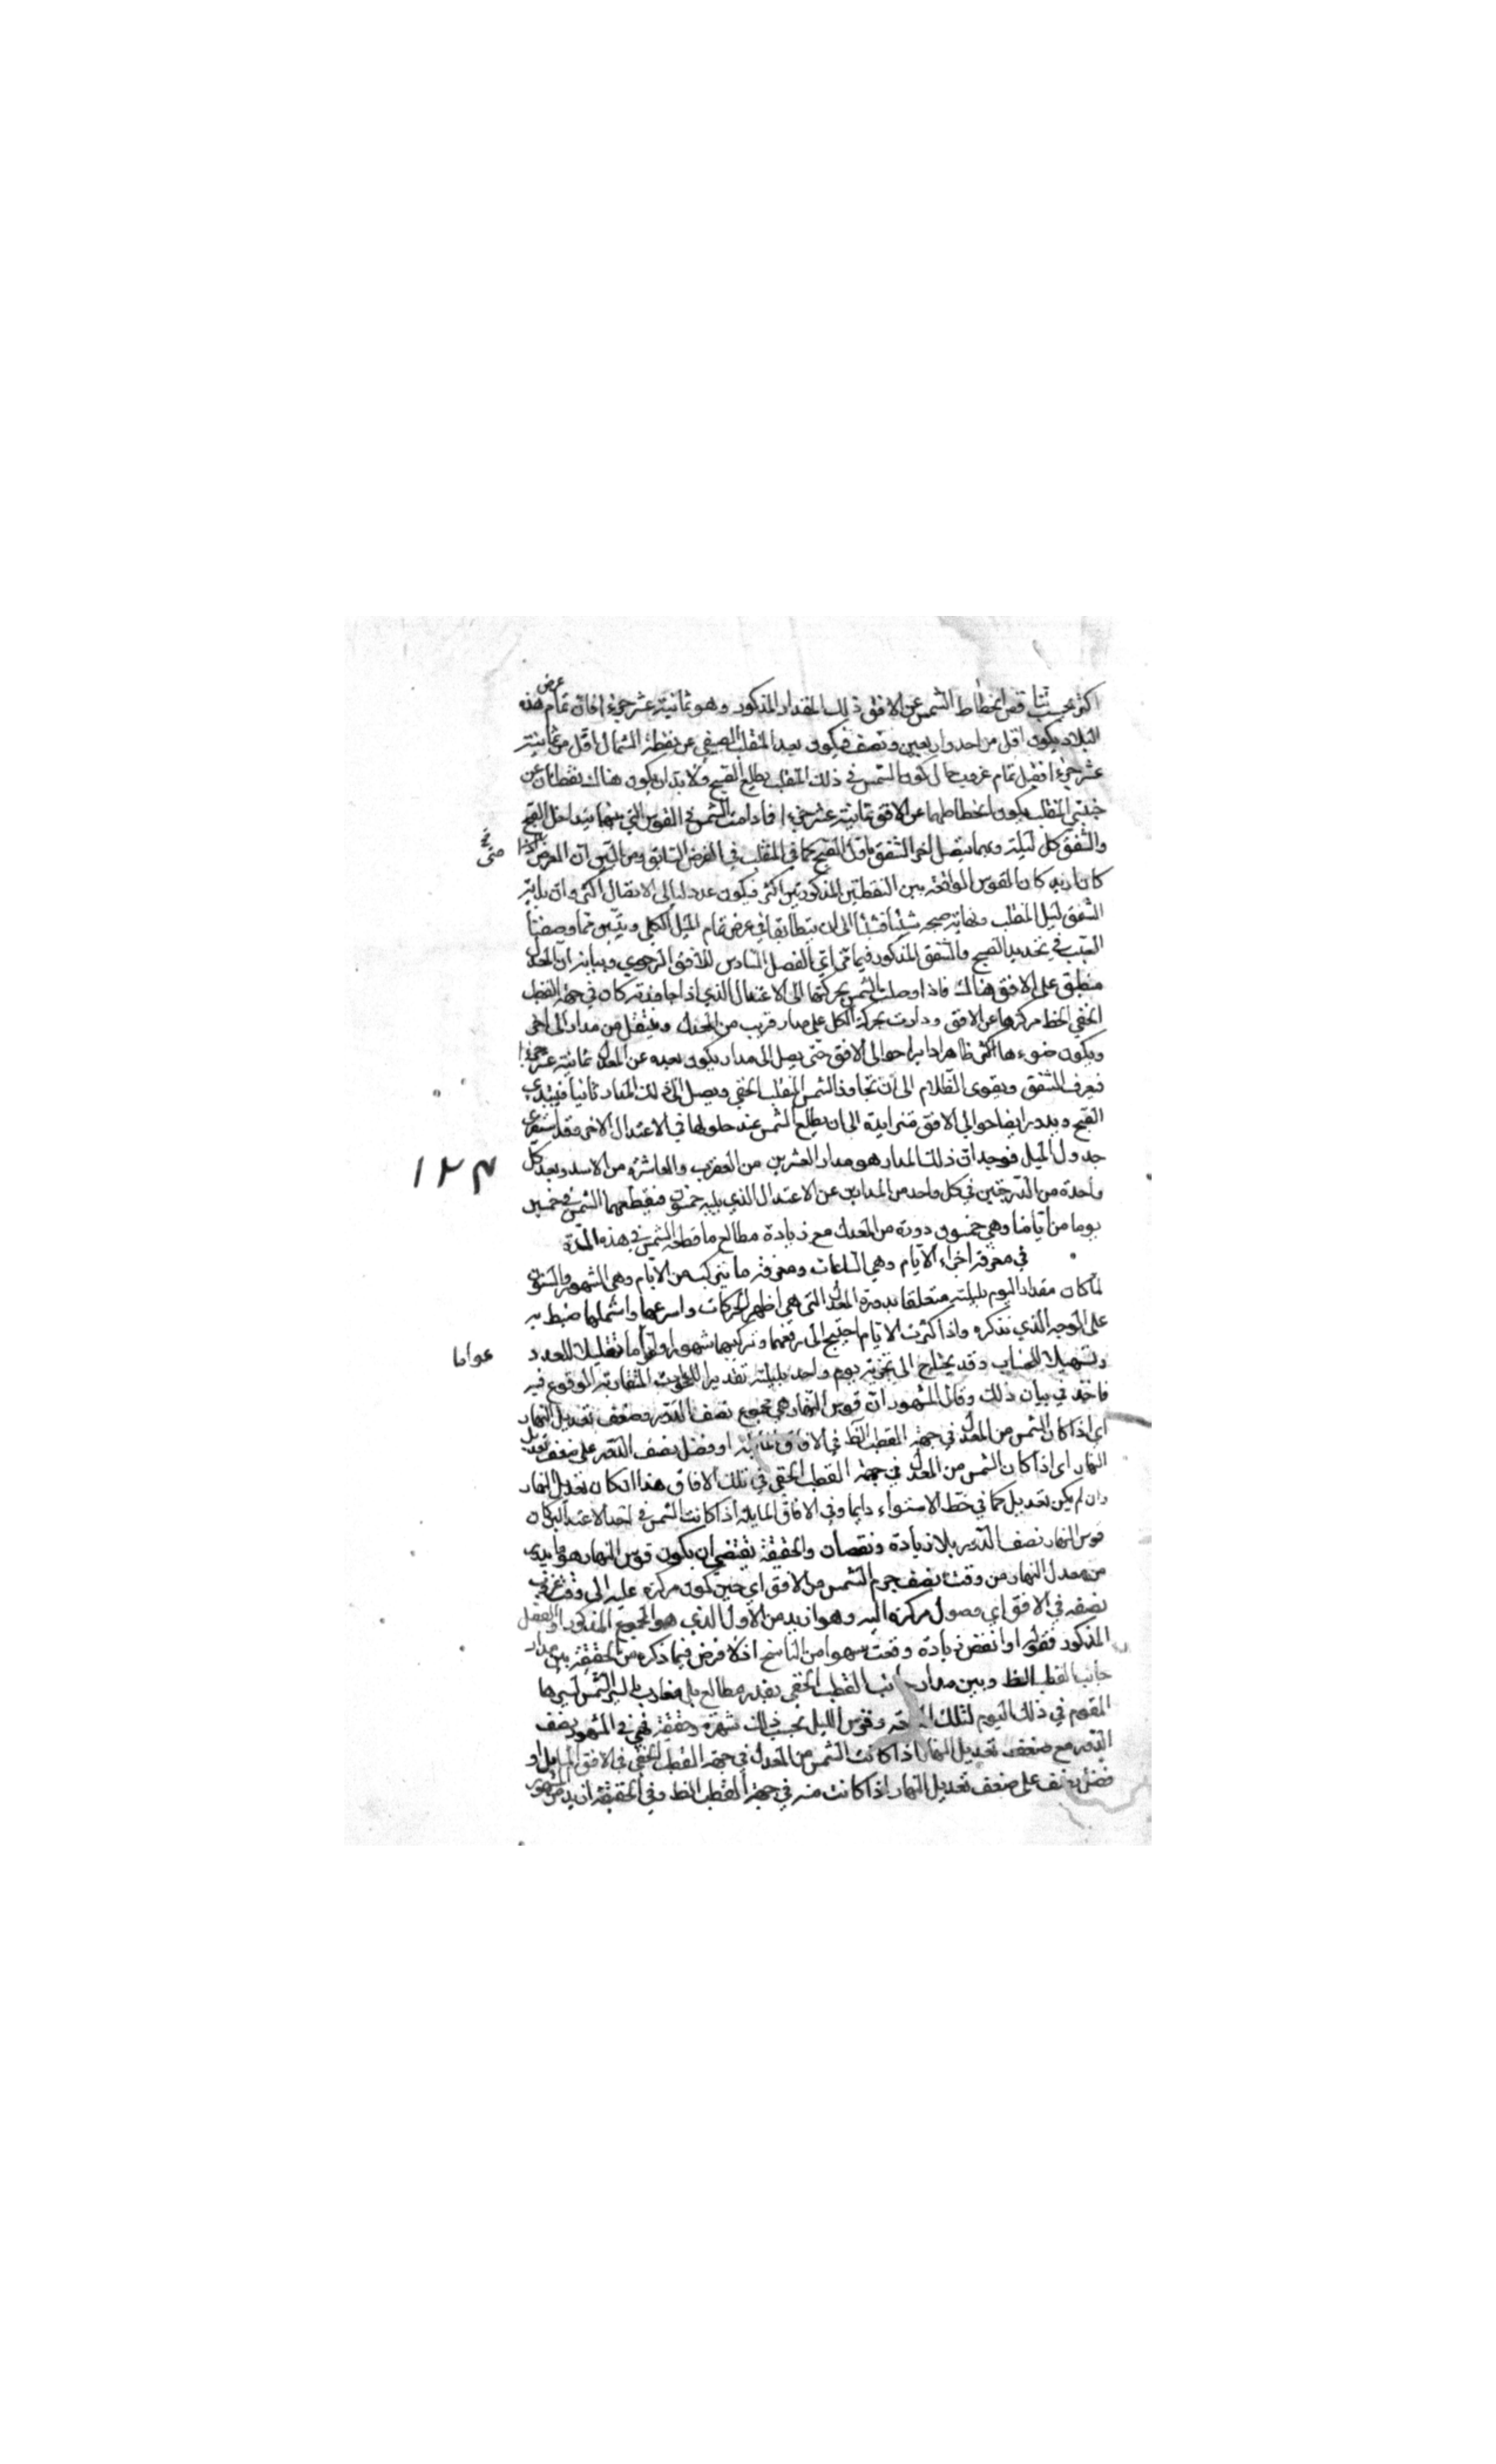 اكثر بحسب تناقص انحطاط الشمس عن الافق ذلك المقدار المذكور وهو ثمانية عشر جزءا فان تمام عرض هذه
البلاد يكون اقل من احد واربعين ونصف فيكون بعد المنقلب الصيفي عن نقطة الشمال اقل من ثمانية
عشر جزءا فقبل تمام غروب حال كون الشمس في ذلك المنقلب يطلع الصبح ولا بد ان يكون هناك نقطتان عن
جنبتي المنقلب يكون انحطاطهما عن الافق ثمانية عشر جزءا فما دامت الشمس في القوس التي بينهما يتداخل الصبح
والشفق كل ليلة وربما يتصل اخر الشفق باول الصبح كما في المنقلب في الفرض السابق ومن البين ان العرض اذا
كان ازيد كان القوس الواقعة بين النقطتين المذكورتين اكثر فيكون عدد ليالي الاتصال اكثر وان بداية
الشفق ليل المنقلب ونهاية صبحه شيئا فشيئا الى ان يتطابقا في عرض تمام الميل الكلي ويتبين مما وصفنا
السبب في تحديد الصبح والشفق المذكور فيما مر في الفصل السادس للافق الرحوي وبيانه ان المعدل
منطبق على الافق هناك فاذا وصلت الشمس بحركتها الى الاعتدال الذي اذا جاوزته كان في جهة القطب
الخفي انحط مركزها عن الافق ودارت بحركة الكل على مدار قريب من المعدل وينتقل من مدار الى اخر
ويكون ضوءها اكثر ظاهرا دايرا حوالى الافق حتى يصل الى مدار يكون بعده عن المعدل ثمانية عشر جزءا
فيعرف الشفق ويقوى الظلام الى ان تجاوز الشمس المنقلب الخفي ويصل الى ذلك المدار ثانيا فيبتدي
الصبح ويدور ايضا حوالي الافق متزايدة الى ان يطلع الشمس عند حلولها في الاعتدال الاخر وقد استقرى
جدول الميل فوجد ان ذلك المدار هو مدار العشرين من العقرب والعاشرة من الاسد وبعد كل
واحدة من الدرجتين في كل واحد من المدارين عن الاعتدال الذي يليه خمسون فيقطعهما الشمس في خمسين
يوما من ايامنا وهي خمسون دورة من المعدل مع زيادة مطالع ما قطعه الشمس في هذه المدة
في معرفة اجزاء الايام وهي الساعات ومعرفة ما يتركب من الايام وهي الشهور والسنون
لما كان مقدار اليوم بليلته متعلقا بدورة المعدل التي هي اظهر الحركات واسرعها واشملها ضبط به
على الوجه الذي نذكره واذا كثرت الايام احتيج الى رفعها وتركيبها شهورا واعواما تقليلا للعدد
وتسهيلا للحساب وقد يحتاج الى تجزية يوم واحد بليلته تقديرا للحوادث المتقاربة الوقوع فيه
فاخذ في بيان ذلك وقال المشهور ان قوس النهار هي مجموع نصف الدور وضعف تعديل النهار
اي اذا كان الشمس من المعدل في جهة القطب الظ في الافاق المايلة او فضل نصف الدور على ضعف تعديل
النهار اى اذا كان الشمس من المعدل في جهة القطب الخفي في تلك الافاق هذا ان كان تعديل النهار
وان لم يكن تعديل كما في خط الاستواء دايما وفي الافاق المايلة اذا كانت الشمس في احد الاعتدالين كان
قوس النهار نصف الدور بلا زيادة ونقصان والحقيقة تقتضي ان يكون قوس النهار هو ما يدور
من معدل النهار من وقت نصف جرم الشمس من الافق اي حين كون مركزه عليه الى وقت غروب
نصفه في الافق اي وصول مركزه اليه وهو ازيد من الاول الذي هو المجموع المذكور او الفضل
المذكور فقوله او انقص زيادة وقعت سهوا من الناسخ اذ لا فرض فيما ذكره من الحقيقة بين مدار
جانب القطب الظ وبين مدار جانب القطب الخفي بقدر مطالع بل مغارب ما لسير الشمس لسيرها
المقوم في ذلك اليوم لتلك وقوس الليل بحسب ذلك شهرة وحقيقة فهي في المشهور نصف
الدور مع ضعف تعديل النهار اذا كانت الشمس من المعدل في جهة القطب الخفي في الافق المايل او
فضل نصف على ضعف تعديل النهار اذا كانت منه في جهة القطب الظ وفي الحقيقة ازيد من المشهور
متى
١٢٣
عواما